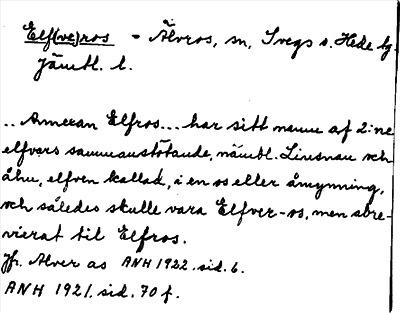 Elf(ve)ros - Älvros, sn, Svegs o. Hede tg.
Jämtl. l.
.. Annexan Elfros... har sitt namn af 2:ne
elfvers sammanstötande, nämbl. Liusnan och
åhn, elfven kallad, i en os eller åmynning,
och således skulle vara Elfver-os, men abre-
vierat til Elfros.
Jfr. Alver as ANH 1922. sid. 6.
ANH 1921. sid. 70 f.